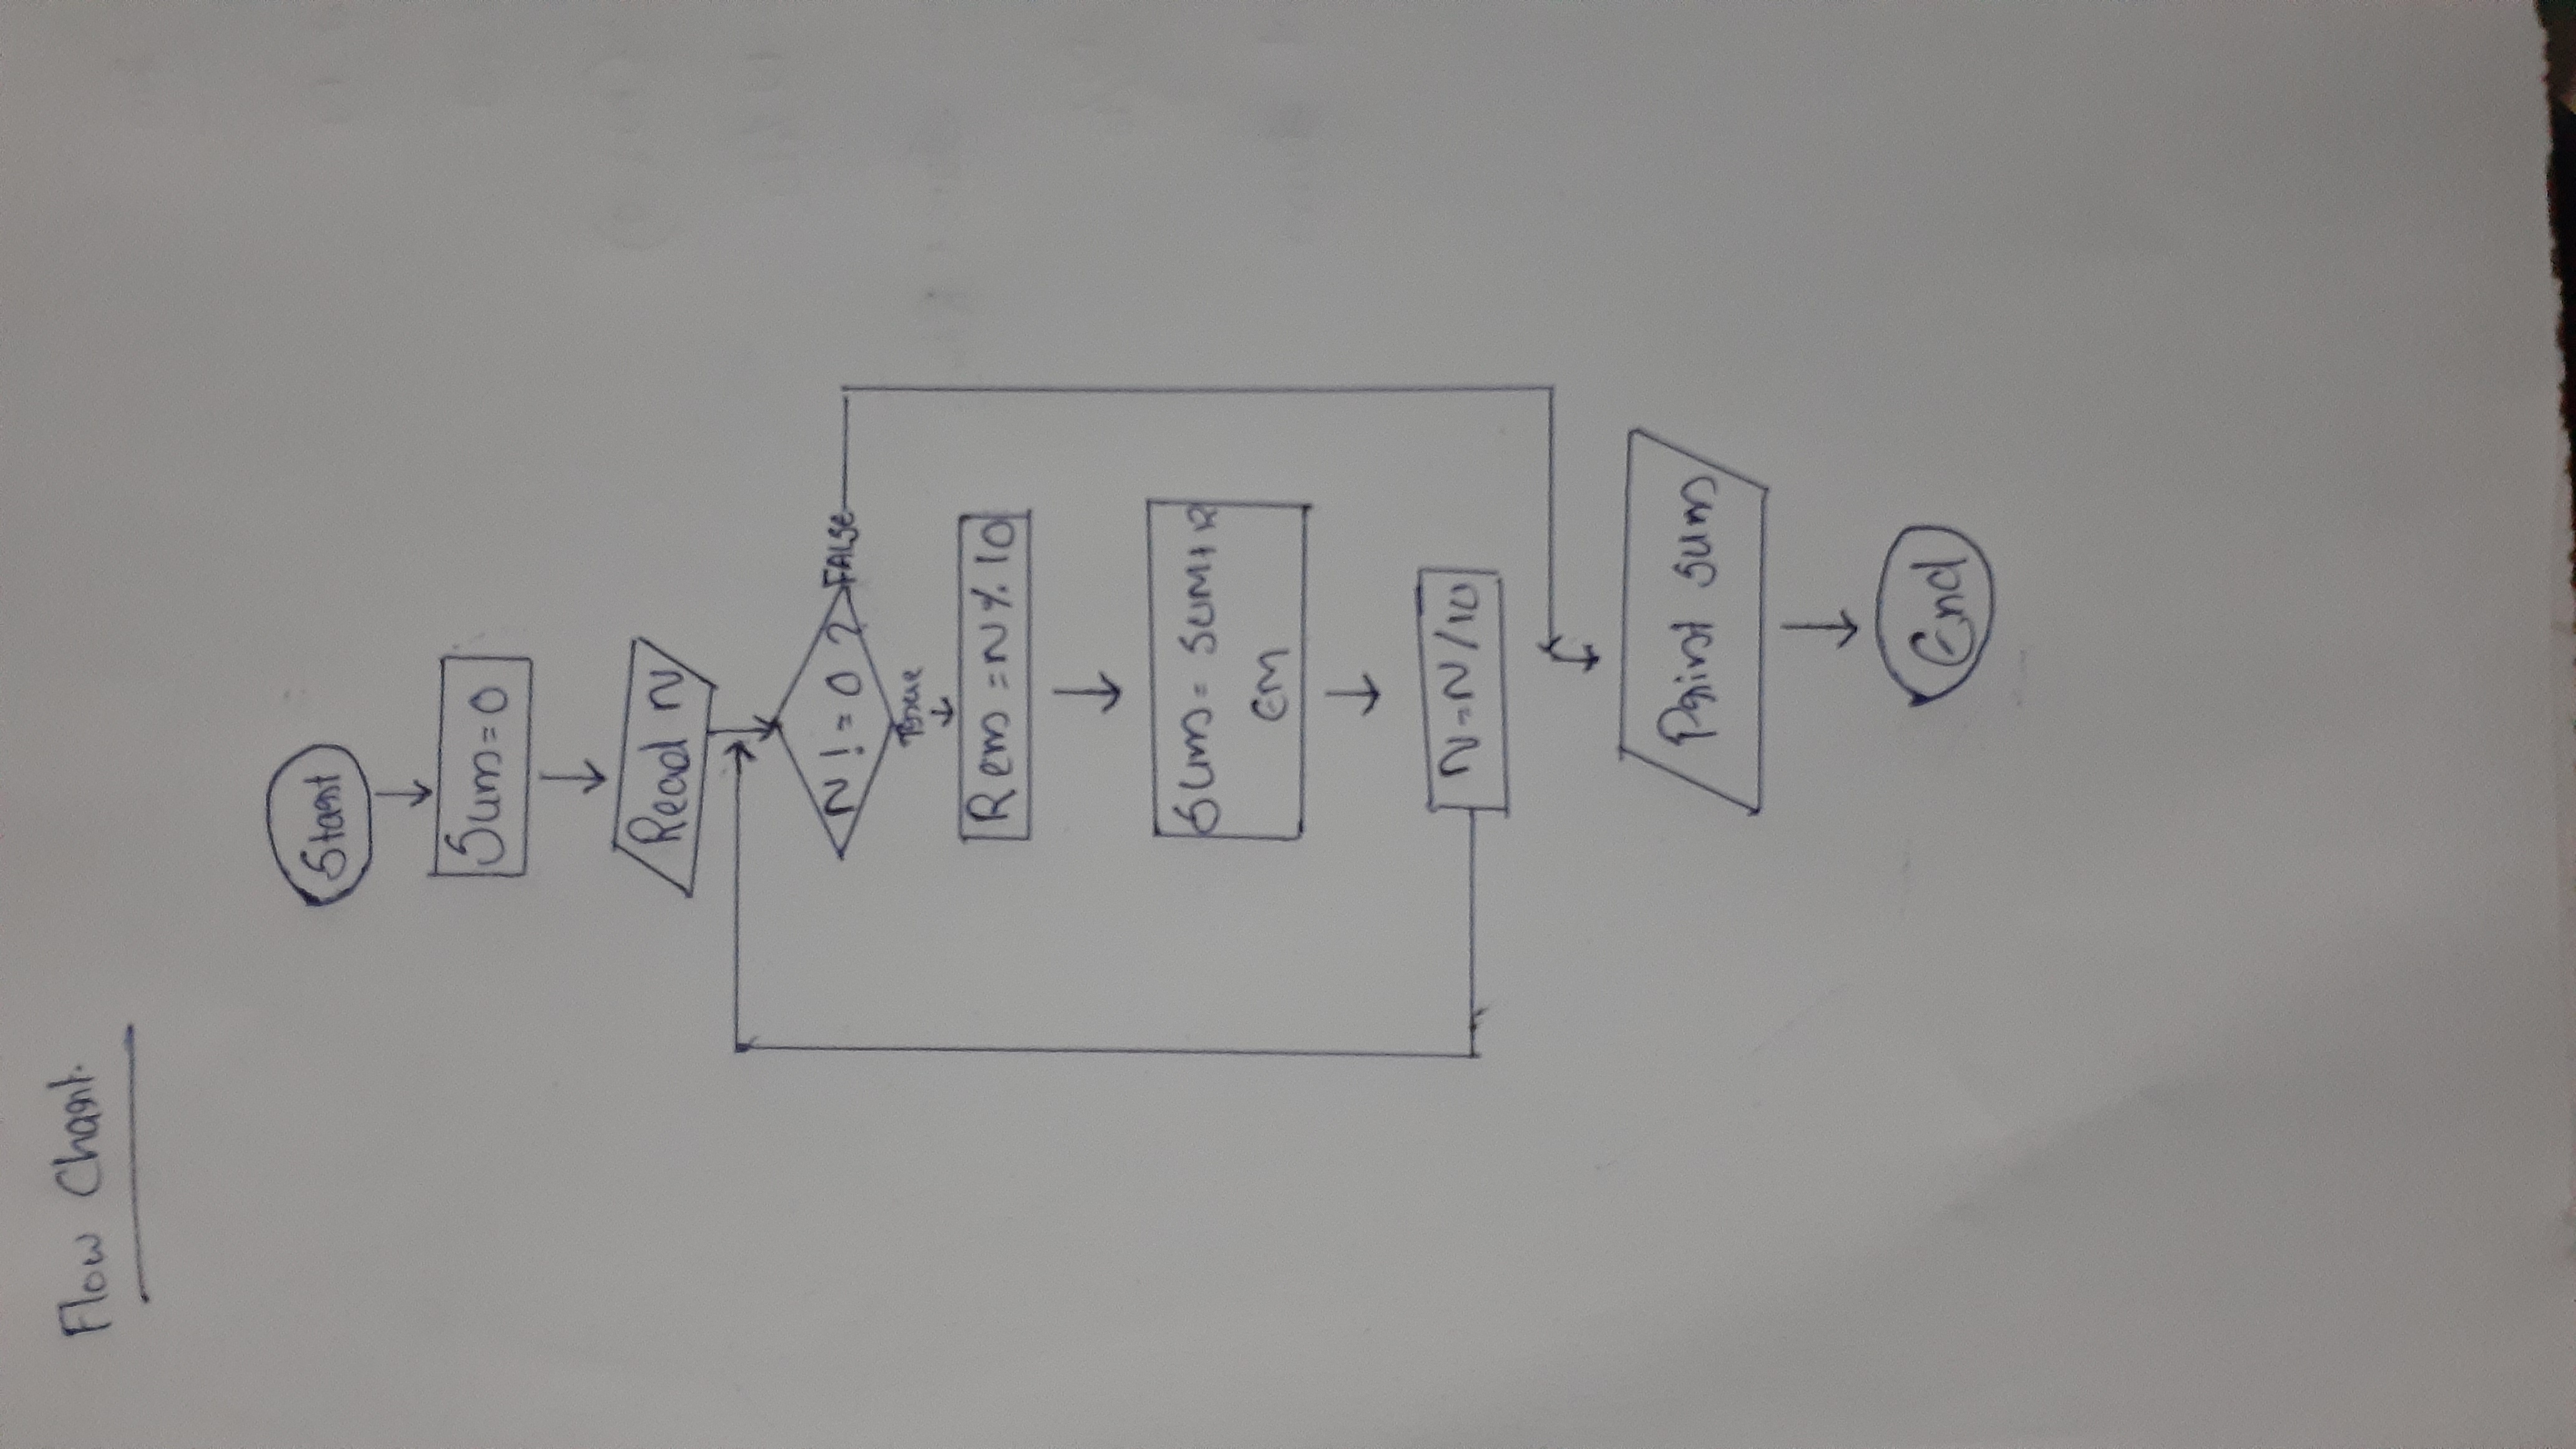 Flow Chart.
Start
Sum=0
Read N
N!=0?
True
FALSE
Rem=N%10
Sum=Sum+R
em
N=N/10
Print Sum
End